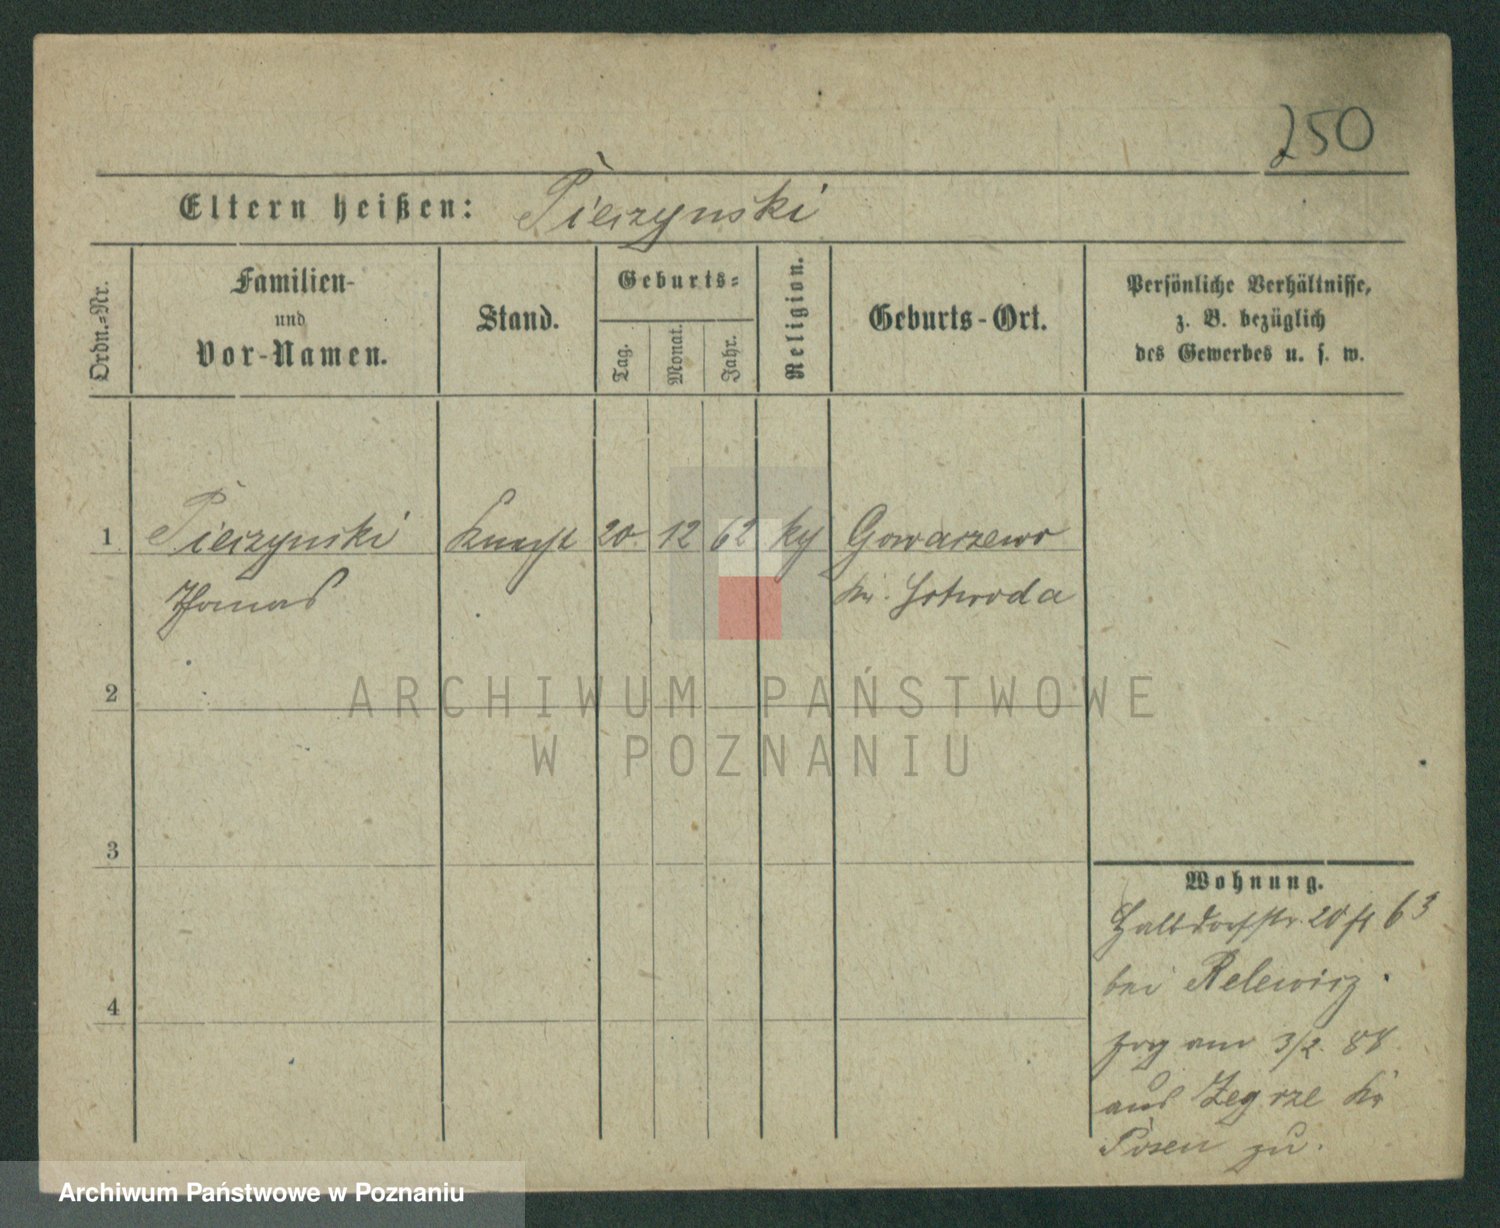 250
Eltern heißen: Pieczynski
Ordn.-Nr.
Familien-
und
Vor-Namen.
Stand.
Geburts-
Tag.
Monat.
Jahr.
Religion.
Geburts-Ort.
Persönliche Verhältnisse,
z. B. bezüglich
des Gewerbes u. s. w.
1 Pieczynski Knecht 20. 12 62. Gowarzewo
Thomas Kr. Schroda
2
3
4
Wohnung.
Halbdorfstr. 20 63
bei
zog am 3/2. 88
aus Zegrze Kr
Posen zu.
ARCHIWUM PAŃSTWOWE
W POZNANIU
Archiwum Państwowe w Poznaniu